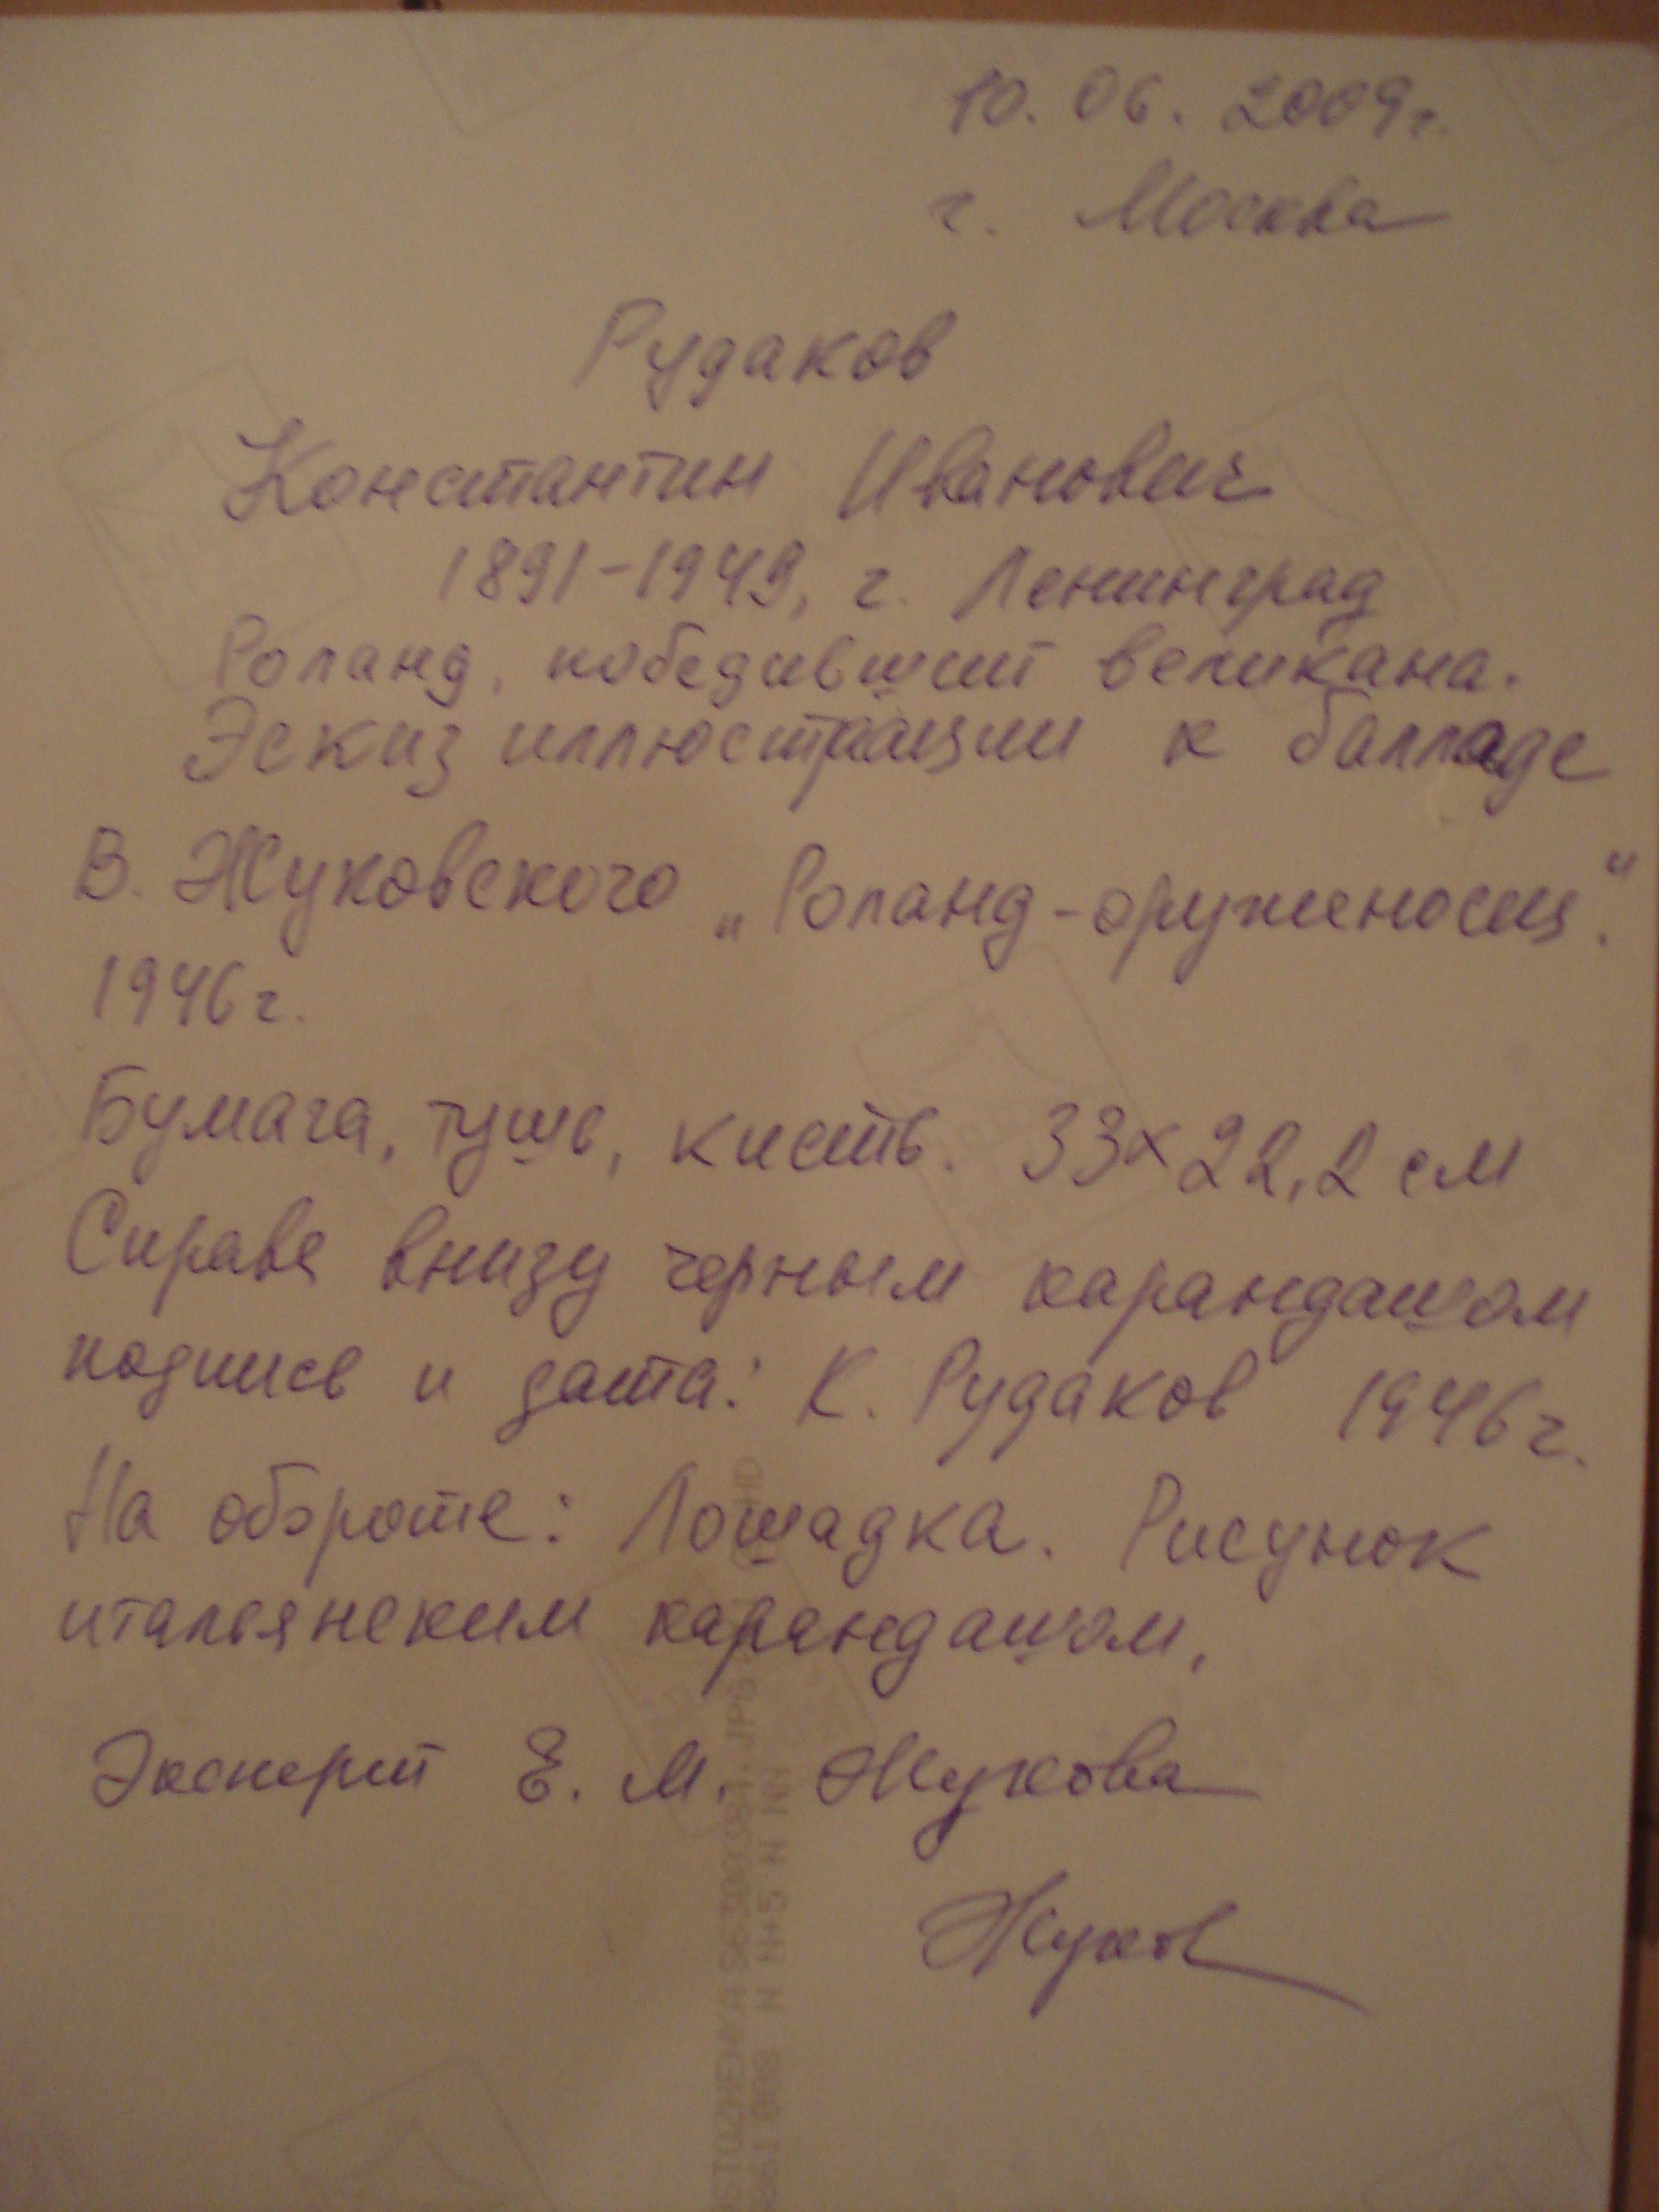 10. 06. 2009г.
г. Москва
Рудаков
Константин Иванович
1891-1949, г. Ленинград
Роланд, победивший великана.
Эскиз иллюстрации к балладе
В. Жуковского „Роланд-оруженосец“.
1946г.
Бумага, тушь, кисть. 33х22,2 см
Справа внизу черным карандашом
подпись и дата: К. Рудаков 1946г.
На обороте: Лошадка. Рисунок
итальянским карандашом.
Эксперт Е. М. Жукова
Жуков